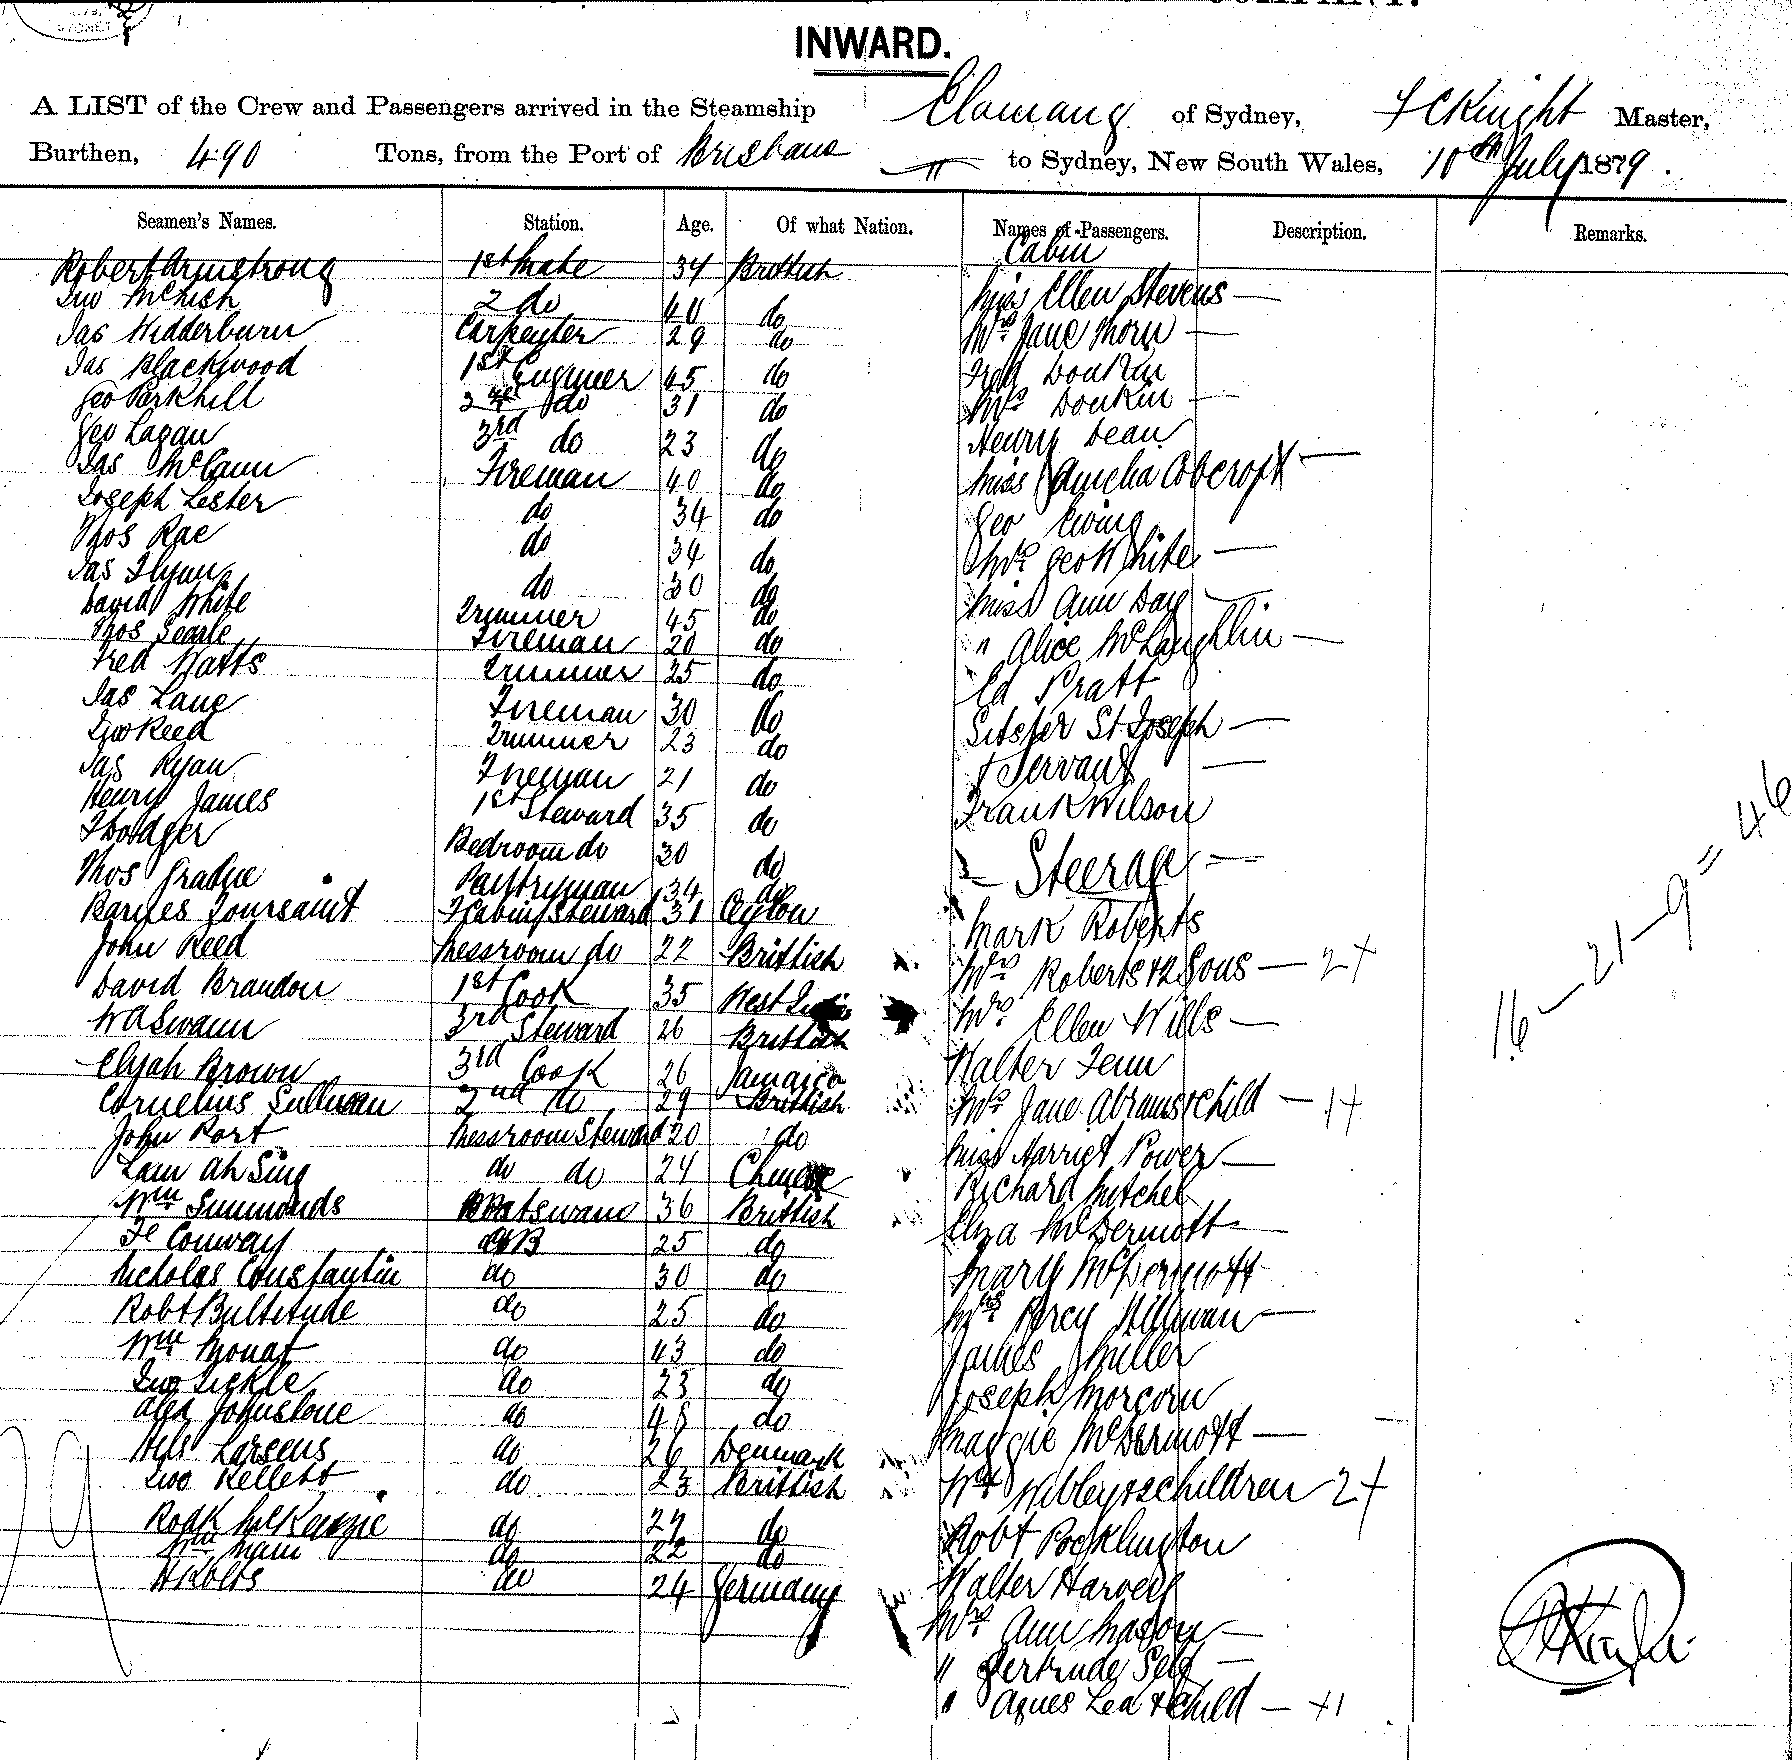 INWARD.
A LIST of the Crew and Passengers arrived in the Steamship Elamang of Sydney, F C Knight Master,
Burthen, 490 Tons, from the Port of Brisbane to Sydney, New South Wales, 10th July 1879.
Seamen's Names. Station. Age. Of what Nation. Names of Passengers. Description. Remarks.
Cabin
Robert Armstrong 1st Mate 34 Brittish
McNish 2 do 40 do Miss Ellen Stevens —
Jas Wedderburn Carpenter 29 do Mrs Jane Thorn —
Jas Blackwood 1st Engineer 45 do Fred Donkin
Geo Parkhill 2nd do 31 do Mrs Donkin —
Geo Lagan 3rd do 23 do Henry Dean
Jas McCann Fireman 40 do Miss Amelia Cobcroft —
Joseph Lester do 34 do Geo Ewing
Thos Rae do 34 do Mrs Geo White —
Jas Flynn do 30 do Miss Ann Day —
David White Trimmer 45 do
Thos Searle Fireman 20 do " Alice McLaughlin —
Fred Watts Trimmer 25 do Ed Pratt
Jas Lane Fireman 30 do Sister St Joseph —
Reed Trimmer 23 do
Jas Ryan Fireman 21 do + Servant —
Henry James 1st Steward 35 do Frank Wilson
Bedroom do 30 do Steerage —
Thos Pantryman 34 do
Barnes Toursaint F Cabin Steward 31 Ceylon Mark Roberts
John Reed Messroom do 22 Brittish Mrs Roberts + 2 Sons — 2+
David Brandon 1st Cook 35 West Mrs Ellen Wills —
W A Swann 3rd Steward 26 Brittish
Elijah Brown 3rd Cook 26 Jamaica Walter Fenn
Cornelius Sullivan 2nd do 29 Brittish Mrs Jane Abrams + Child — 1+
John Port Messroom Steward 20 do Miss Harriet Power —
Lam Ah Sing do do 24 Chinese Richard Mitchel
Wm Simmonds Boatswain 36 Brittish Eliza McDermott —
Conway AB 25 do
Nicholas Constantin do 30 do Mary McDermott
Robt Bultitude do 25 do Mrs Percy Hillman —
Wm Mouat do 43 do James Miller
Tickle do 23 do Joseph Morgan
Alex Johnstone do 48 do
Nils Larsens do 26 Denmark Maggie McDermott —
Kellett do 23 Brittish Wibley + 2 children 2+
Rodk McKenzie do 27 do Robt Pocklington
Wm do 22 do
do 24 Germany Walter Harvey
Mrs Ann Mason —
" Gertrude Self —
" Agnes Lea + Child — +1
16 — 21 — 9 = 46